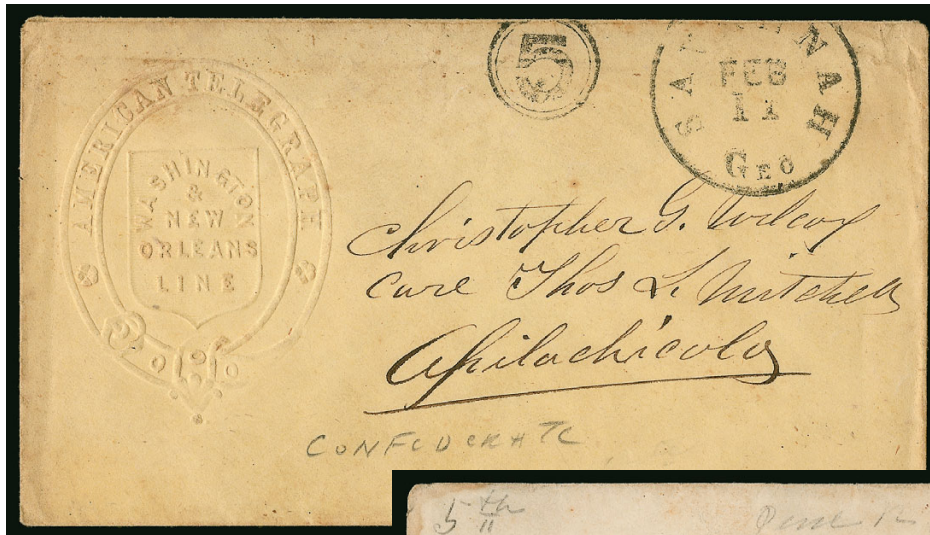 AMERICAN TELEGRAPH
WASHINGTON
&
NEW
ORLEANS
LINE
5
SAVANNAH
FEB
11
GEO
Christopher G. Wilcox
Care Thos L. Mitchell
Aphilachicola
CONFEDERATE
5th